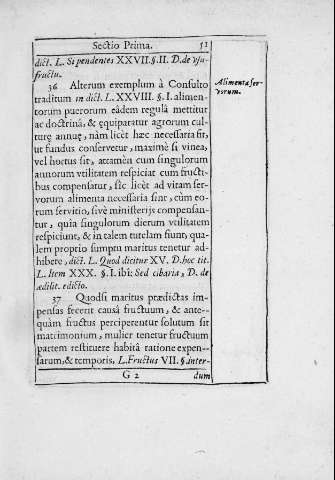 Sectio Prima. 51
dict. L. Si pendentes XXVII. §. II. D. de usu-
fructu.
36 Alterum exemplum à Consulto
traditum in dict. L. XXVIII. §. I. alimen-
torum puerorum eâdem regulâ mettitur
ac doctrinâ, & equiparatur agrorum cul-
turę annuę, nàm licèt hæc necessaria sit,
ut fundus conservetur, maximè si vinea,
vel hortus sit, attamèn cum singulorum
annorum vtilitatem respiciat cum fructi-
bus compensatur, sìc licèt ad vitam ser-
vorum alimenta necessaria sint, cùm eo-
rum servitio, sivè ministerijs compensan-
tur, quia singulorum dierum vtilitatem
respiciunt, & in talem tutelam suam, qua-
lem proprio sumptu maritus tenetur ad-
hibere, dict. L. Quod dicitur XV. D. hoc tit.
L. Item XXX. §. I. ibi: Sed cibaria, D. de
ædilit. edicto.
Alimenta ser-
vorum.
37 Quodsi maritus prædictas im-
pensas fecerit causâ fructuum, & ante-
quàm fructus perciperentur solutum sit
matrimonium, mulier tenetur fructuum
partem restituere habitâ ratione expen-
sarum, & temporis, L. Fructus VII. §. inter-
G 2 dum